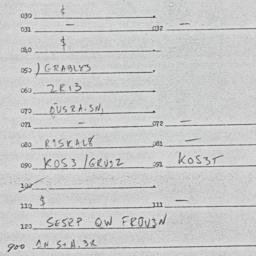 030 $
031 — 032 —
040 $
050 ) GRABLY3
060 2R13
070
071 — 072 —
080 R1SKAL8 081 —
090 KOS3 / GRUS2 091 KOS3T
100
110 $ 111 —
120 SESRP OW FROV3N
900